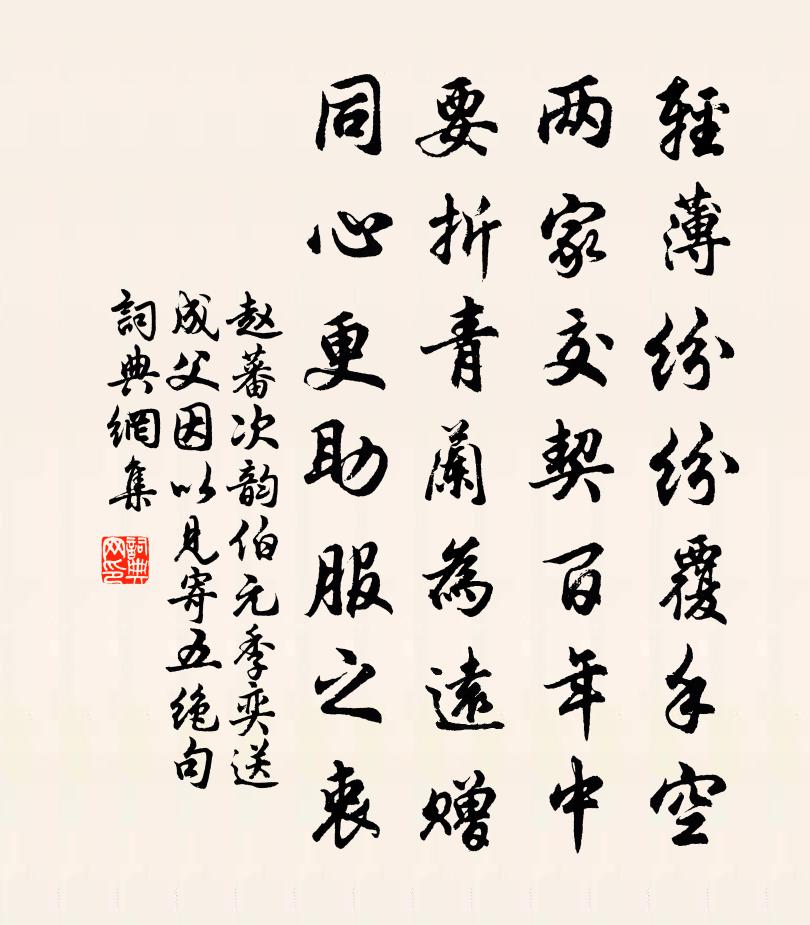 輕薄紛紛覆手空
两家交契百年中
要折青蘭為遠贈
同心更助服之衷
赵蕃次韵伯元季奕送
成父因以見寄五绝句
詞典網集
詞典网印